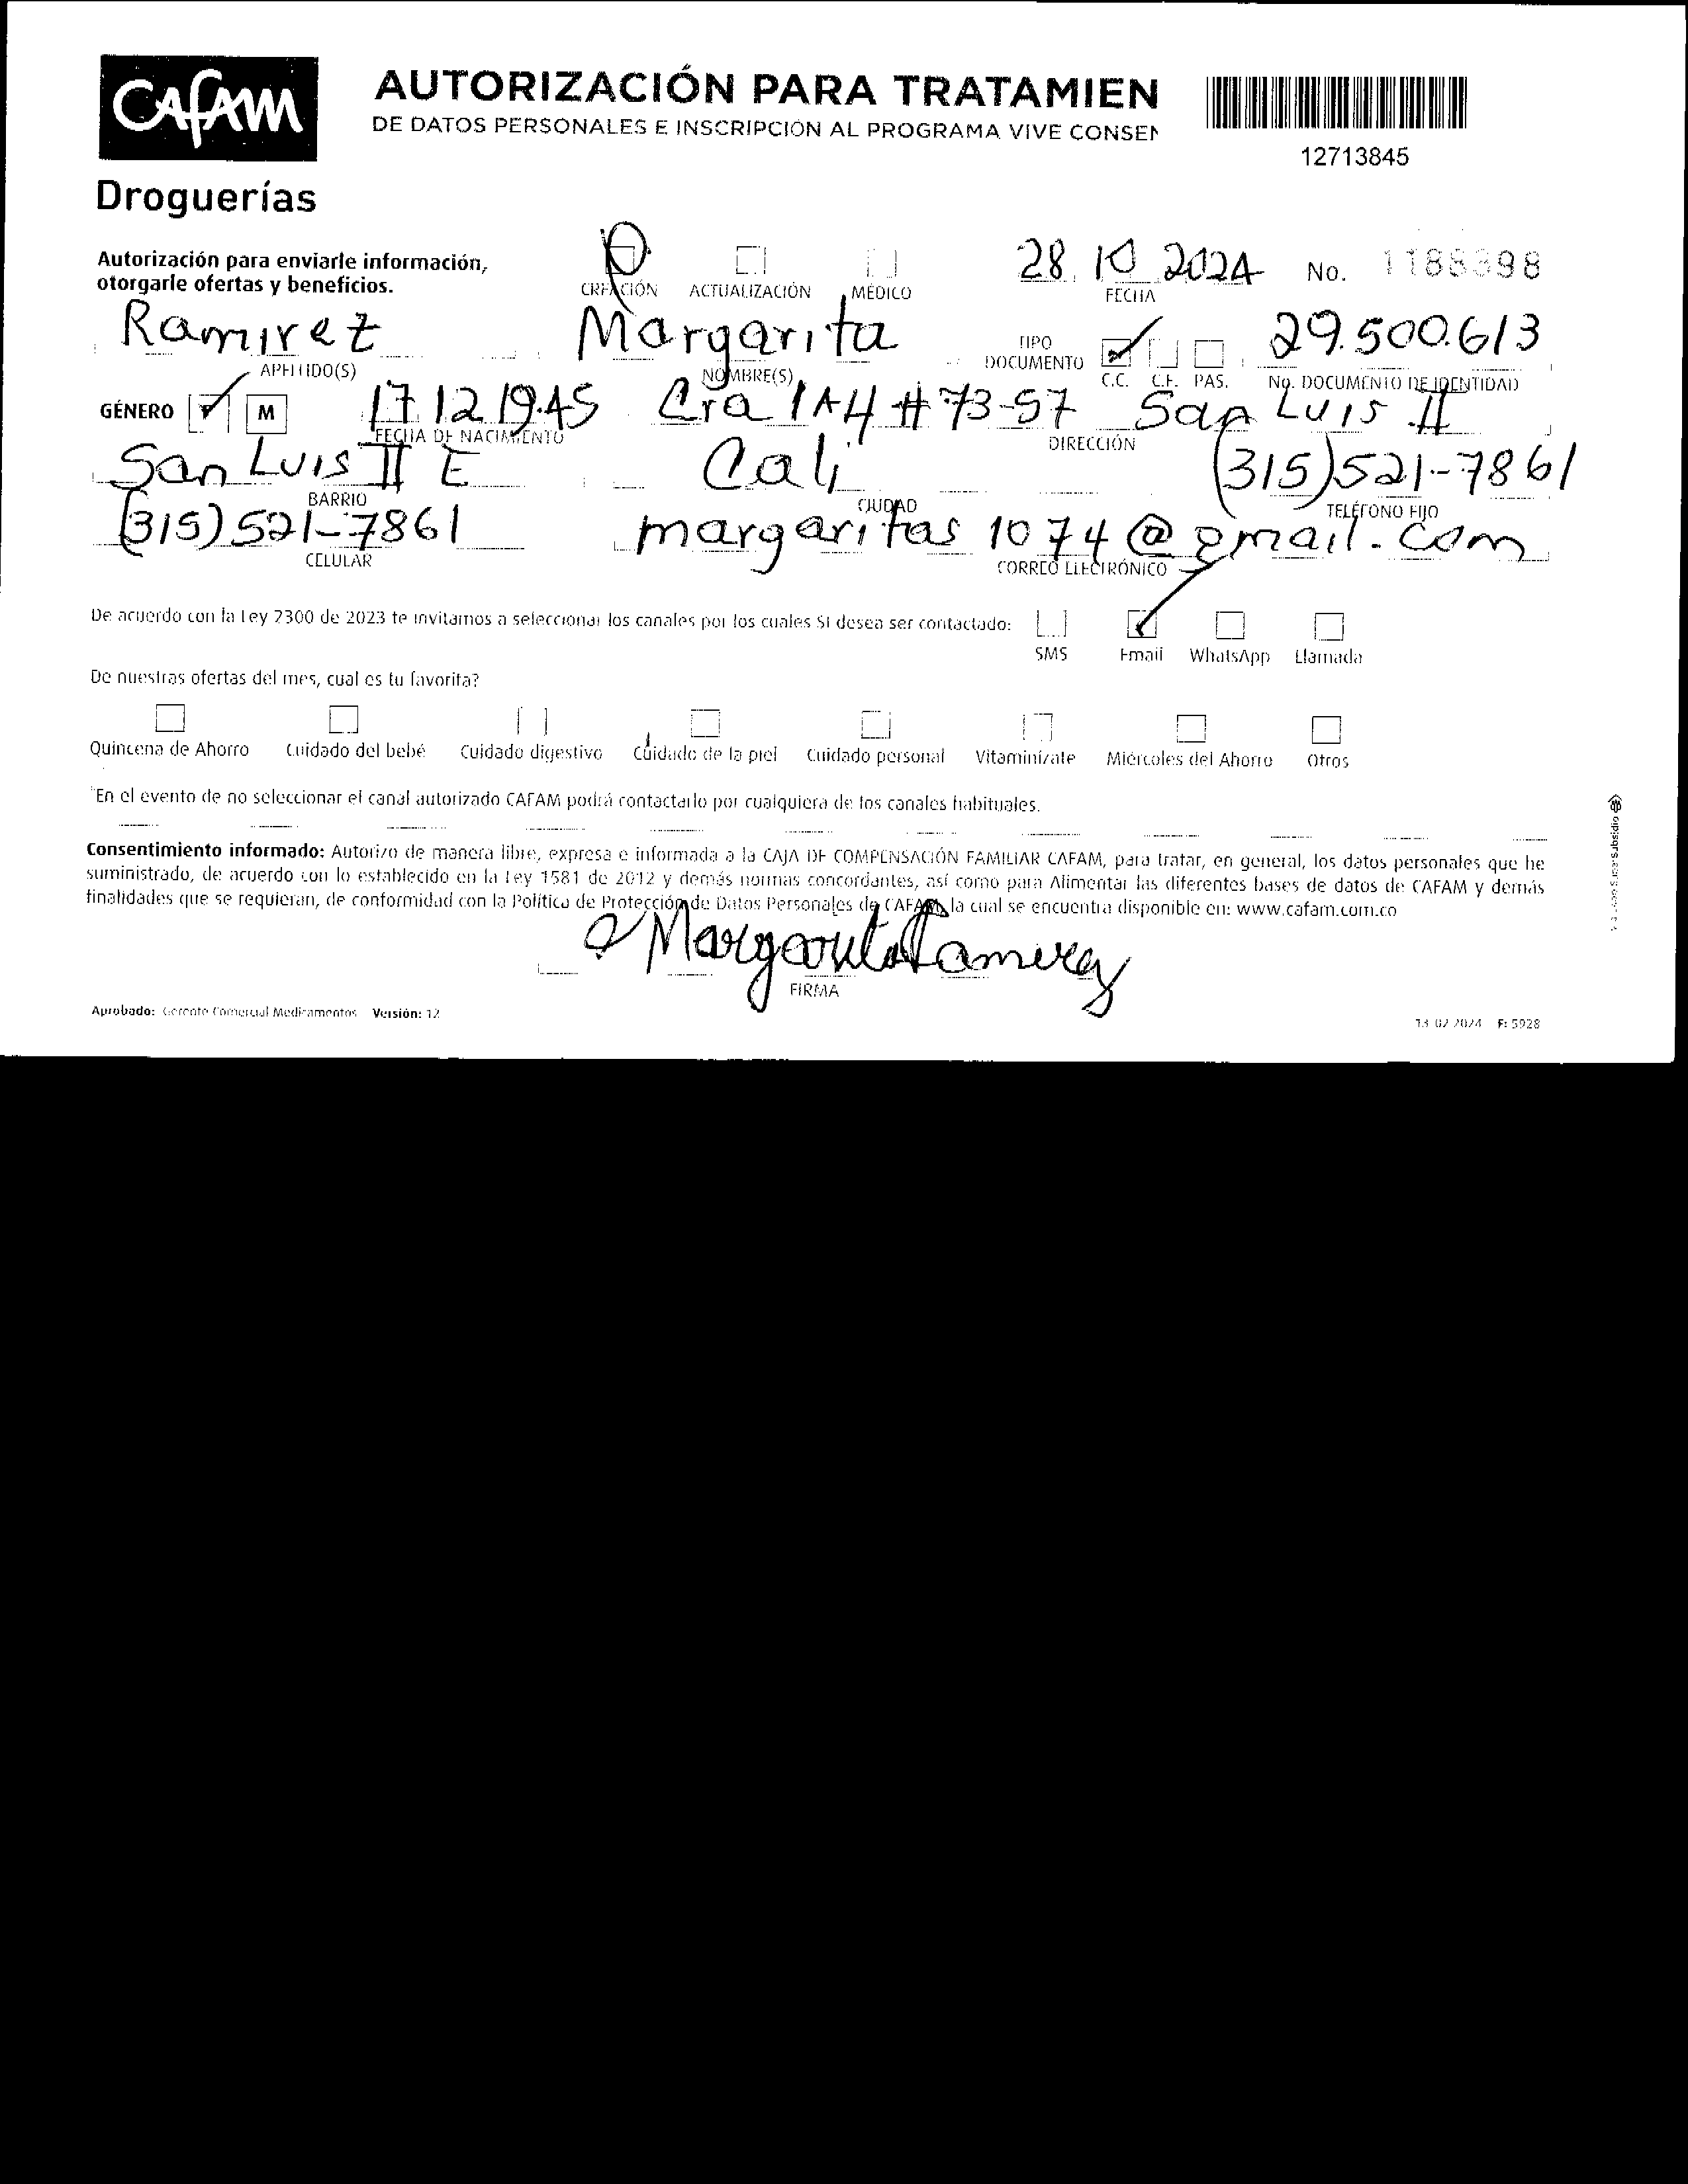 CAFAM
Droguerías
AUTORIZACIÓN PARA TRATAMIEN
DE DATOS PERSONALES E INSCRIPCIÓN AL PROGRAMA VIVE CONSEN
12713845
Autorización para enviarle información,
otorgarle ofertas y beneficios.
CREACIÓN ACTUALIZACIÓN MÉDICO
28 10 2024
FECHA
No. 1188398
Ramirez Margarita
APELLIDO(S) NOMBRE(S)
TIPO DOCUMENTO C.C. C.E. PAS.
29.500.613
No. DOCUMENTO DE IDENTIDAD
GÉNERO F M
17 12 1945 Cra 1A4 # 73-57 San Luis II
FECHA DE NACIMIENTO DIRECCIÓN
San Luis II E Cali (315) 521-7861
BARRIO CIUDAD TELÉFONO FIJO
(315) 521-7861 margaritas1074@gmail.com
CELULAR CORREO ELECTRÓNICO
De acuerdo con la Ley 2300 de 2023 te invitamos a seleccionar los canales por los cuales SI desea ser contactado:
SMS Email WhatsApp Llamada
De nuestras ofertas del mes, cual es tu favorita?
Quincena de Ahorro Cuidado del bebé Cuidado digestivo Cuidado de la piel Cuidado personal Vitaminízate Miércoles del Ahorro Otros
*En el evento de no seleccionar el canal autorizado CAFAM podrá contactarlo por cualquiera de los canales habituales.
Consentimiento informado: Autorizo de manera libre, expresa e informada a la CAJA DE COMPENSACIÓN FAMILIAR CAFAM, para tratar, en general, los datos personales que he
suministrado, de acuerdo con lo establecido en la Ley 1581 de 2012 y demás normas concordantes, así como para Alimentar las diferentes bases de datos de CAFAM y demás
finalidades que se requieran, de conformidad con la Política de Protección de Datos Personales de CAFAM la cual se encuentra disponible en: www.cafam.com.co
Margarita Ramirez
FIRMA
Aprobado: Gerente Comercial Medicamentos Versión: 12
13 02 2024 F: 5928